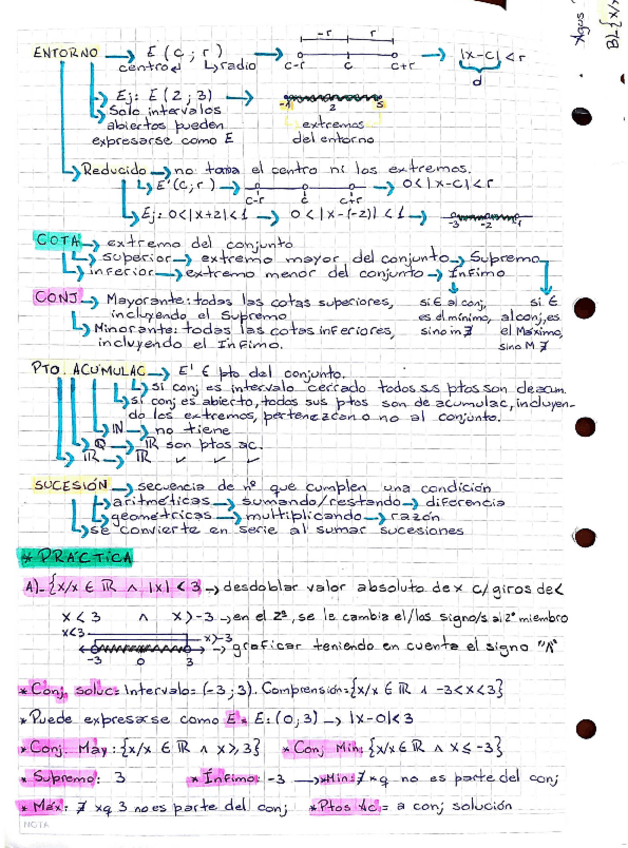 ENTORNO → E (c ; r) → -r r → |x-c| < r
centro radio c-r c c+r d
Ej: E (2 ; 3) → -1 2 5
Solo intervalos abiertos pueden expresarse como E
extremos del entorno
Reducido → no toma el centro ni los extremos.
E'(c ; r) → c-r c c+r → 0<|x-c|<r
Ej: 0<|x+2|<1 → 0<|x-(-2)|<1 → -3 -2 -1
COTA → extremo del conjunto
superior → extremo mayor del conjunto → Supremo
inferior → extremo menor del conjunto → Ínfimo
CONJ → Mayorante: todas las cotas superiores,
incluyendo el Supremo
Minorante: todas las cotas inferiores,
incluyendo el Ínfimo.
si ∈ al conj,
es el mínimo,
sino m ∄
si ∈
al conj, es
el Máximo,
sino M ∄
PTO. ACUMULAC → E' ∈ pto del conjunto.
si conj es intervalo cerrado todos sus ptos son de acum.
si conj es abierto, todos sus ptos son de acumulac, incluyen-
do los extremos, pertenezcan o no al conjunto.
ℕ → no tiene
ℚ → ℝ son ptos ac.
ℝ → ℝ ✓ ✓ ✓
SUCESIÓN → secuencia de nº que cumplen una condición
aritméticas → sumando/restando → diferencia
geométricas → multiplicando → razón
se convierte en serie al sumar sucesiones
* PRÁCTICA
A)- {x/x ∈ ℝ ∧ |x| < 3 → desdoblar valor absoluto de x c/giros de <
x < 3 ∧ x > -3 → en el 2º, se le cambia el/los signo/s al 2º miembro
x<3 x>-3
-3 0 3 → graficar teniendo en cuenta el signo "∧"
* Conj. soluc = Intervalo = (-3 ; 3). Comprensión = {x/x ∈ ℝ ∧ -3<x<3}
* Puede expresarse como E * E: (0 ; 3) → |x-0|<3
* Conj. May: {x/x ∈ ℝ ∧ x ≥ 3} * Conj Min: {x/x ∈ ℝ ∧ x ≤ -3}
* Supremo: 3 * Ínfimo: -3 → * Min: ∄ xq no es parte del conj
* Máx: ∄ xq 3 no es parte del conj * Ptos Ac = a conj solución
NOTA
Agus
B) {x/x